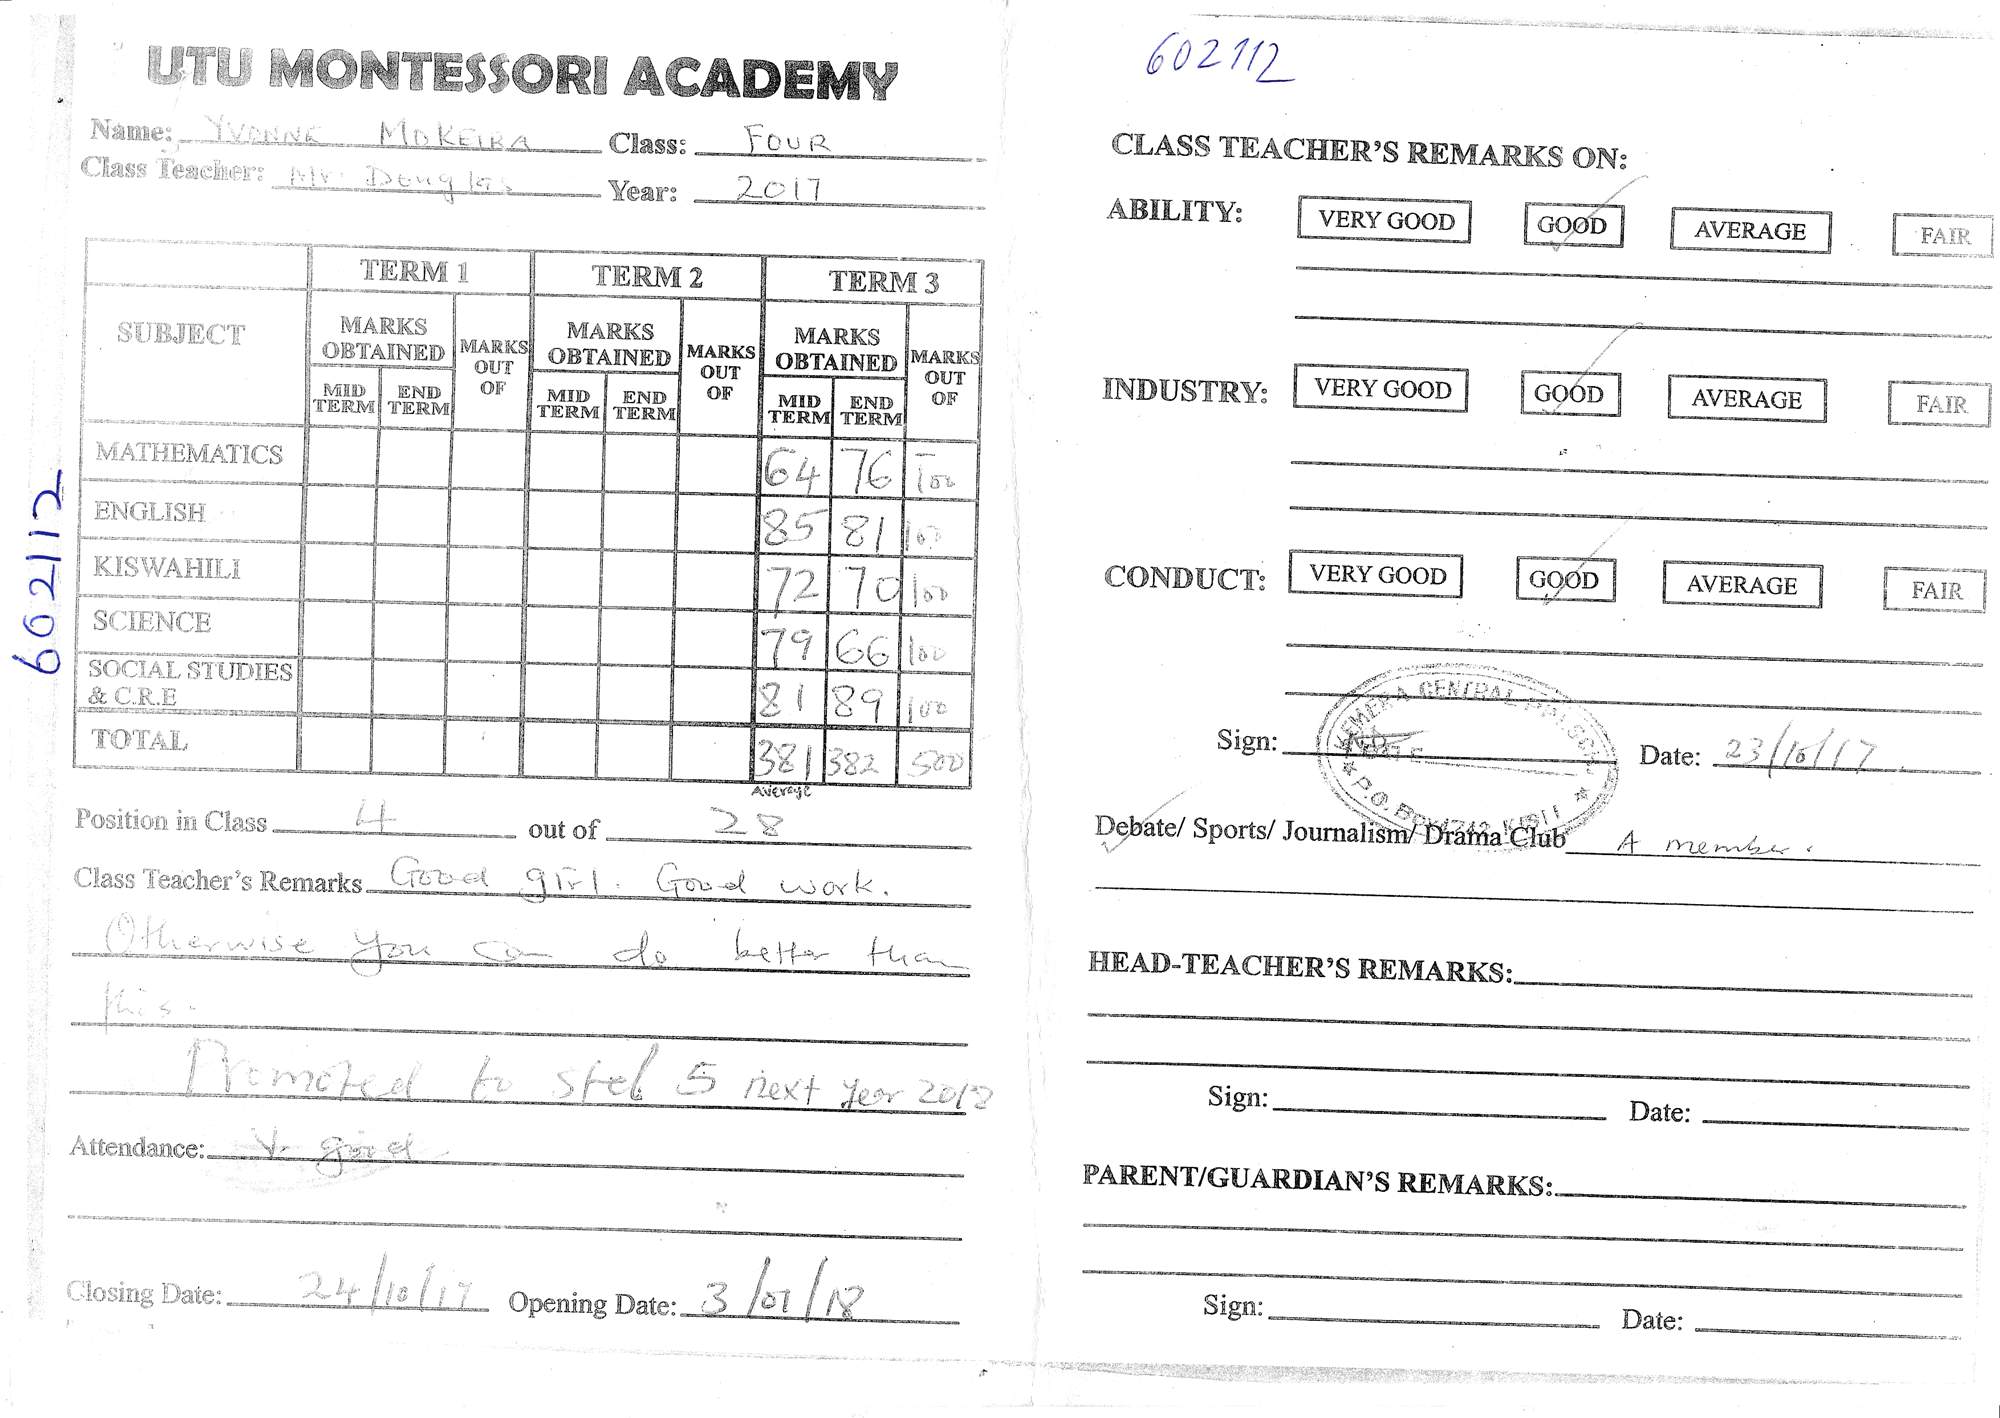 UTU MONTESSORI ACADEMY
Name: YVONNE MOKEIRA Class: FOUR
Class Teacher: Mr. Douglas Year: 2017
TERM 1 TERM 2 TERM 3
SUBJECT MARKS OBTAINED MARKS OUT OF MARKS OBTAINED MARKS OUT OF MARKS OBTAINED MARKS OUT OF
MID TERM END TERM MID TERM END TERM MID TERM END TERM
MATHEMATICS 64 76 100
ENGLISH 85 81 100
KISWAHILI 72 70 100
SCIENCE 79 66 100
SOCIAL STUDIES & C.R.E 81 89 100
TOTAL 381 382 500
Average
Position in Class 4 out of 28
Class Teacher's Remarks Good girl. Good work.
Otherwise you can do better than
this.
Promoted to std 5 next year 2018
Attendance: V. good
Closing Date: 24/10/17 Opening Date: 3/01/18
602112
602112
CLASS TEACHER'S REMARKS ON:
ABILITY: VERY GOOD GOOD AVERAGE FAIR
INDUSTRY: VERY GOOD GOOD AVERAGE FAIR
CONDUCT: VERY GOOD GOOD AVERAGE FAIR
KEMERA CENTRAL
Sign: Date: 23/10/17
P.O. Box KISII
Debate/ Sports/ Journalism/ Drama Club A member.
HEAD-TEACHER'S REMARKS:
Sign: Date:
PARENT/GUARDIAN'S REMARKS:
Sign: Date: